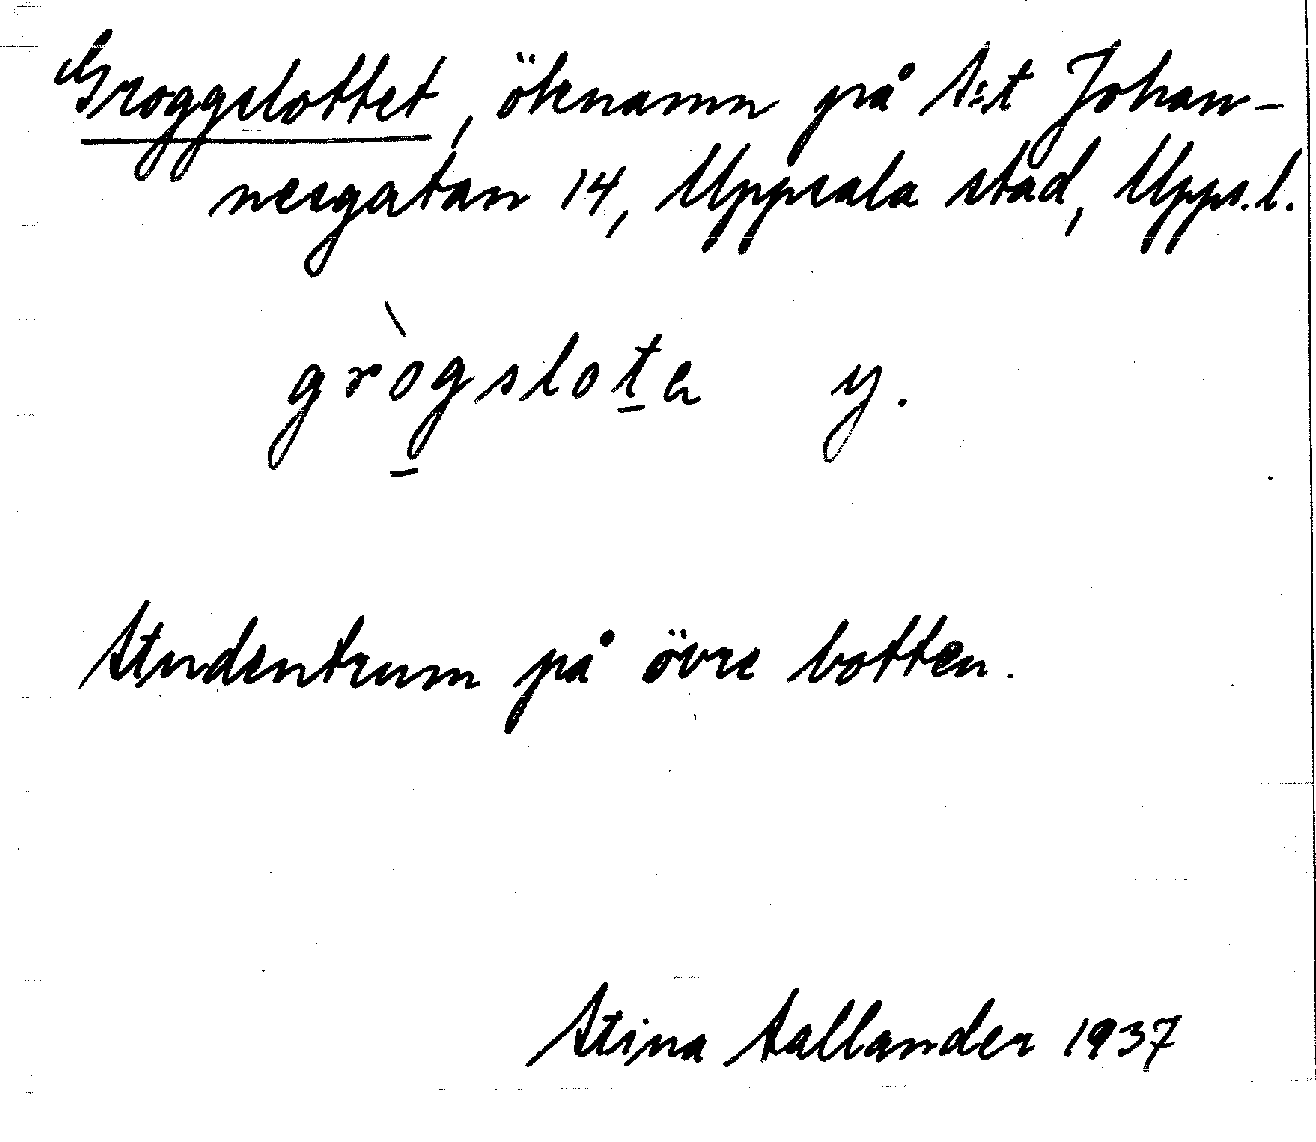 Groggslottet, öknamn på S:t Johan-
nesgatan 14, Uppsala stad, Upps.l.
gròg̲slot̲a y.
Studentrum på övre botten.
Stina Sallander 1937